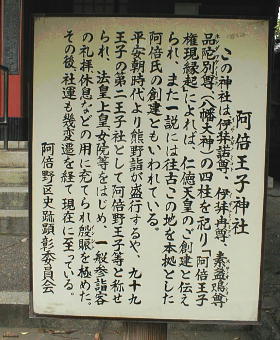 阿倍王子神社
この神社は、伊弉諾尊、伊弉冉尊、素盞嗚尊
品陀別尊(八幡大神)の四柱を祀り「阿倍王子
権現縁起」によれば、仁徳天皇のご創建と伝え
られ、また一説には往古この地を本拠とした
阿倍氏の創建ともいわれている。
平安朝時代より熊野詣が盛行するや、九十九
王子の第二王子社として阿倍野王子等と称せ
られ、法皇上皇女院等をはじめ、一般参詣客
の礼拝休息などの用に充てられ殷賑を極めた。
その後、社運も幾変遷を経て現在に至っている。
阿倍野区史跡顕彰委員会